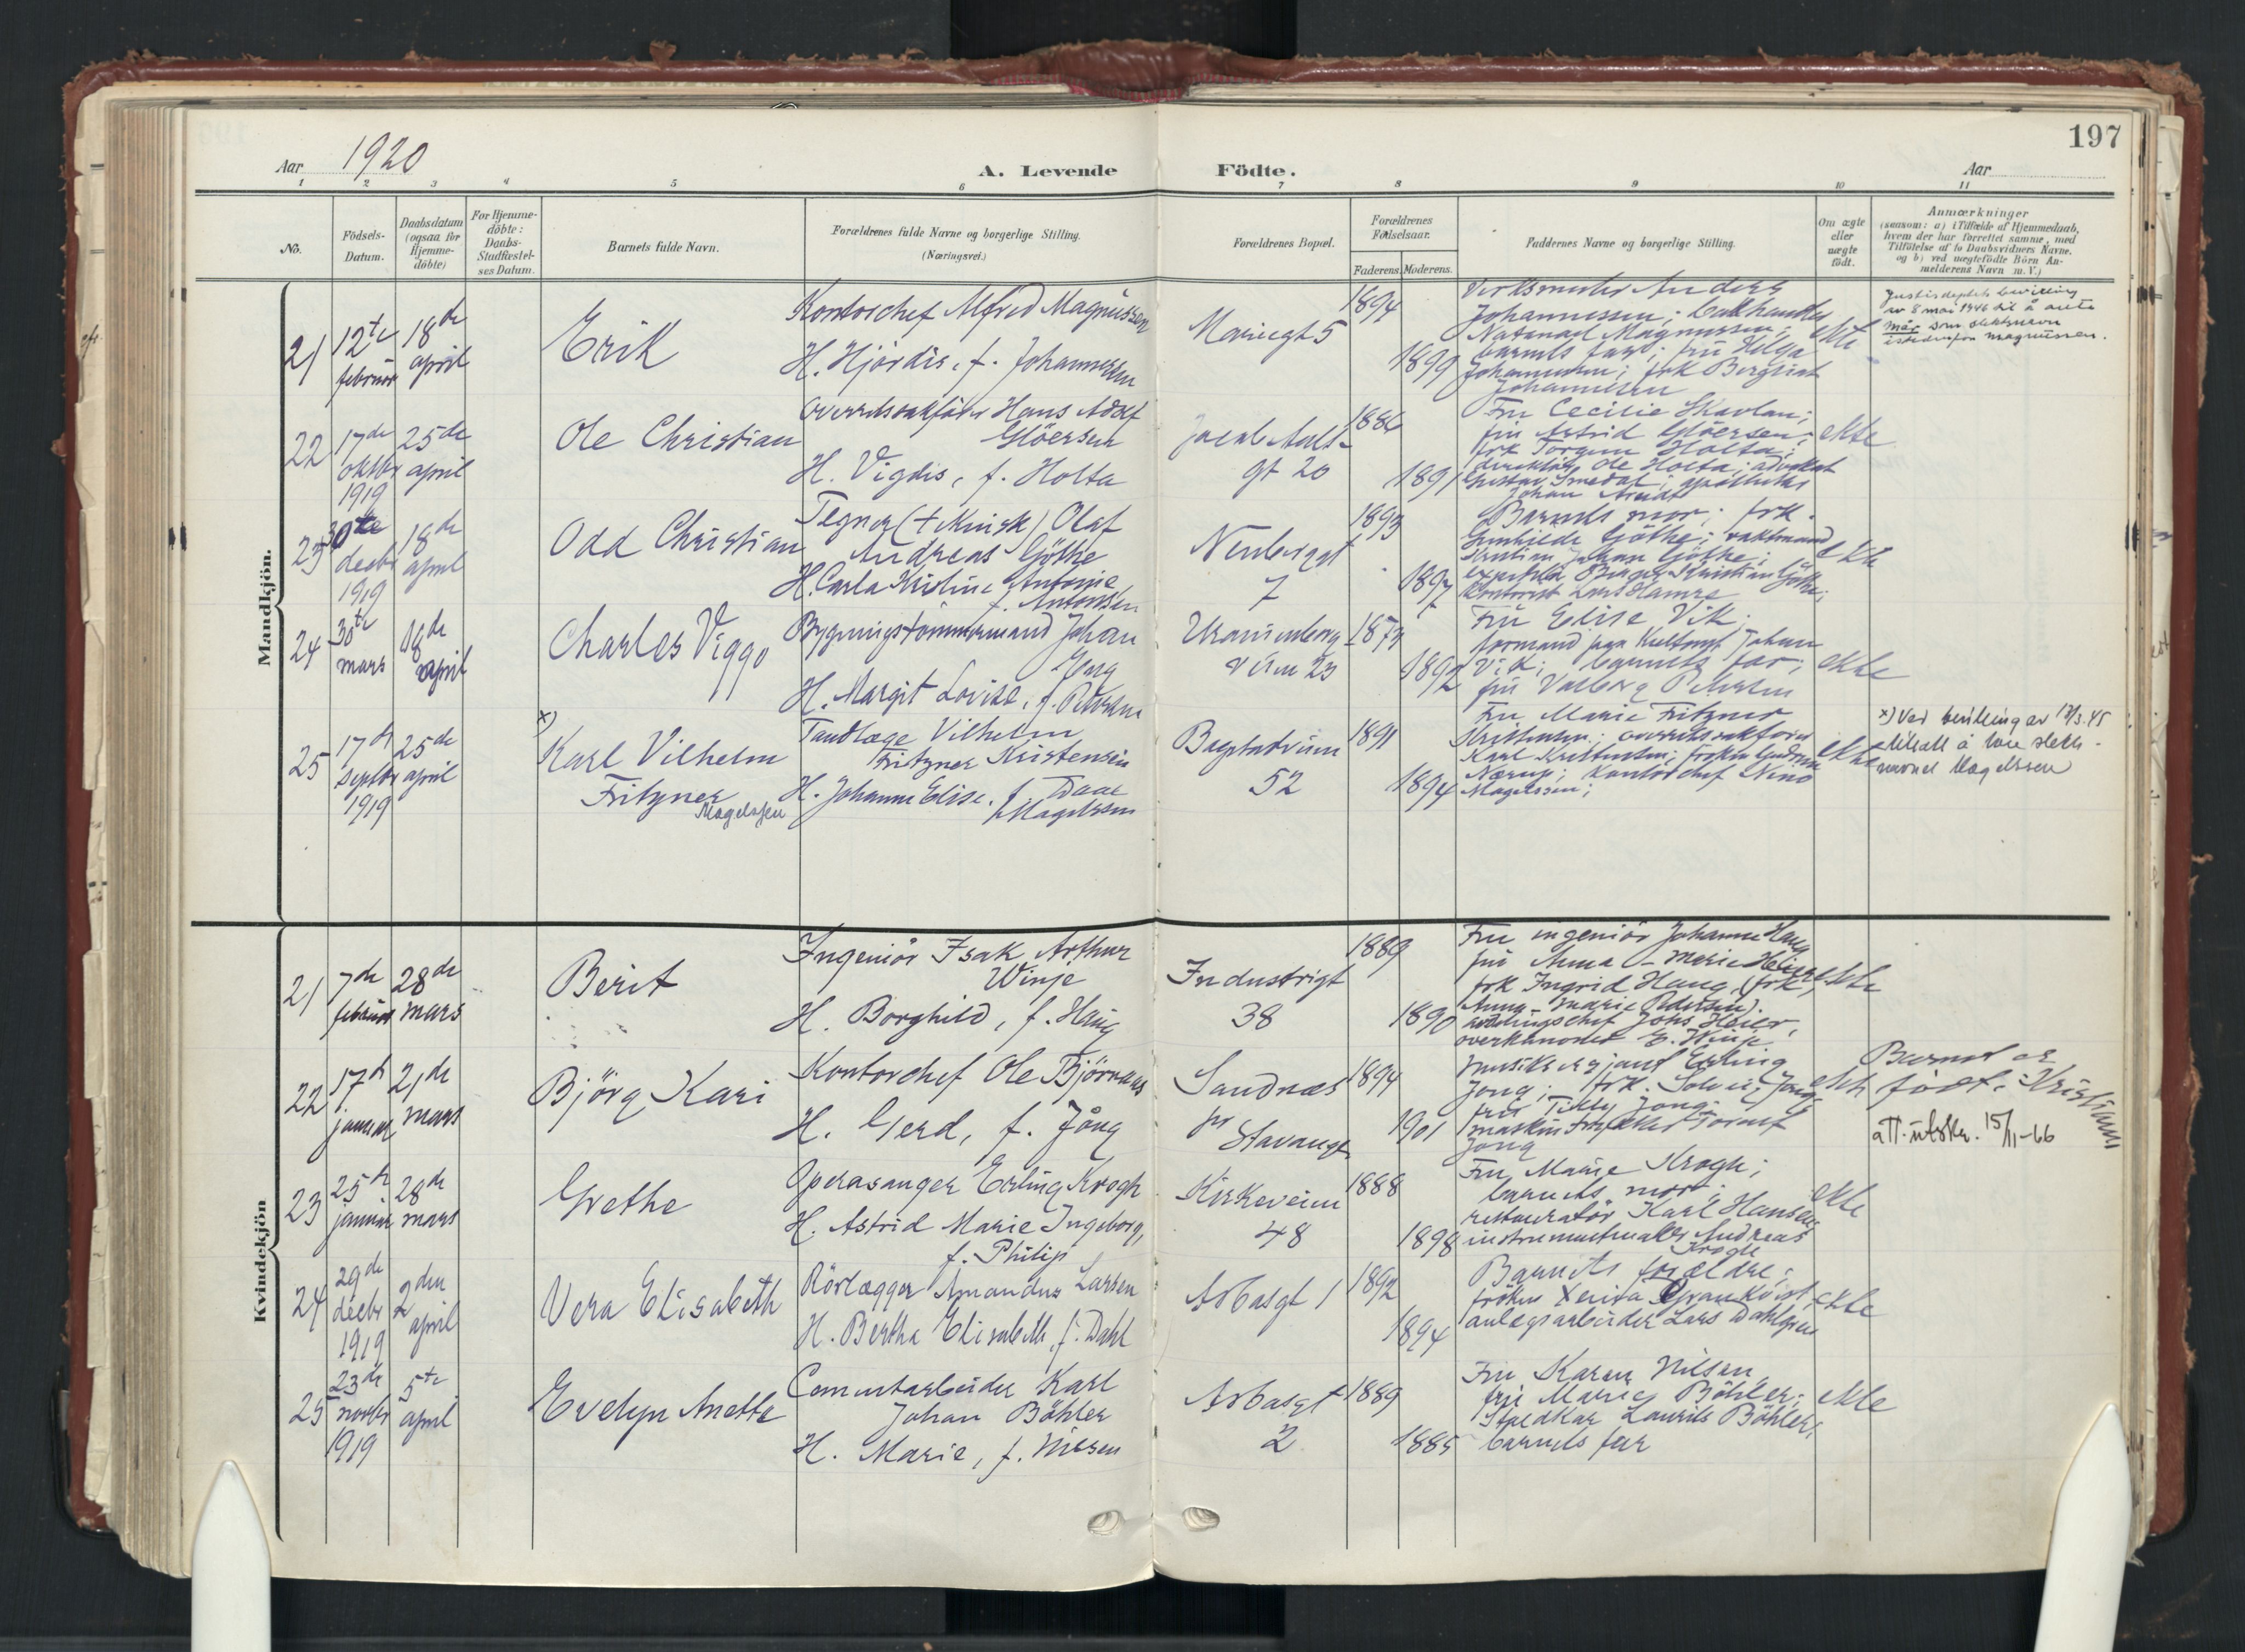 197
Aar 1920
A. Levende Födte.
Aar
1 2 3 4 5 6 7 8 9 10 11
No.
Födsels-
Datum.
Daabsdatum
(ogsaa for
Hjemme-
döbte)
For Hjemme-
döbte:
Daabs-
Stadfæstel-
ses Datum.
Barnets fulde Navn.
Forældrenes fulde Navne og borgerlige Stilling.
(Næringsvei.)
Forældrenes Bopæl.
Forældrenes
Födselsaar.
Faderens. Moderens.
Faddernes Navne og borgerlige Stilling.
Om ægte
eller
uægte
födt.
Anmærkninger
(saasom: a) i Tilfælde af Hjemmedaab,
hvem der har forrettet samme, med
Tilföielse af to Daabsvidners Navne.
og b) ved uægtefödte Börn An-
melderens Navn m. V.)
Mandkjön.
21
12te
februar
18de
april
Erik
Kontorchef Alfred Magnussen
H. Hjördis, f. Johannessen
Mariegt 5
1894
1899
Verksmester Anders
Johannessen;
Natanael Magnussen;
barnets far; fru Helga
Johannessen; frk Bergliot
Johannessen
ekte
Justisdeptets bevilling
av 8 mai 1946 til å anta
Mår som slektsnavn
istedenfor Magnussen.
22
17de
oktbr
1919
25de
april
Ole Christian
Overretssakförer Hans Adolf
Glöersen
H. Vigdis, f. Holta
Jacob Aalls
gt 20
1886
1891
Fru Cecilie Skavlan;
fru Astrid Glöersen;
frk Torgun Holta;
direktör Ole Holta; advokat
Gustav Smedal; apotheker
Johan Arndt
ekte
23
30te
decbr
1919
18de
april
Odd Christian
Tegner (teknisk) Olaf
Andreas Göthe
H. Carla Kristine Antonie,
f. Antonsen
Neuberggt
7
1893
1897
Barnets mor; frk.
Gunhilde Göthe; vaktmand
Kristian Johan Göthe;
kontorist Lars Hamre
ekte
24
30te
mars
18de
april
Charles Viggo
Bygningstömmermand Johan
Berg
H. Margit Lovise, f. Petersen
Uranienborg
veien 23
1873
1892
Fru Elise Vik;
formand Johan
Vik; barnets far;
fru Valborg Petersen
ekte
25
17de
septbr
1919
25de
april
x)
Karl Vilhelm
Fritzner
Magelssen
Tandlæge Vilhelm
Fritzner Kristensen
H. Johanne Elise, f. Daae
Magelssen
Bogstadveien
52
1891
1894
Fru Marie Fritzner
Kristensen; overretssakförer
Karl Kristensen; fröken Gudrun
Nærup; kontorchef Nino
Magelssen;
ekte
x) Ved bevilling av 17/3.45
tillatt å bære slekts-
navnet Magelssen
Kvindekjön
21
7de
februar
28de
mars
Berit
Ingeniör Isak Arthur
Winje
H. Borghild, f. Haug
Industrigt
38
1889
1890
Fru ingeniör Johanne Haug
fru Anna-Marie Heier
frk Ingrid Haug, (frk
Anna Marie Pedersen).
avdelingschef Johs Heier,
overkanoner E. Winje
ekte
22
17de
januar
21de
mars
Björg Kari
Kontorchef Ole Bjørnaas
H. Gerd, f. Jong
Sandnæs
pr
Stavanger
1894
1901
Musiksergjant Erling
Jong; frk. Solveig Jong;
fru Tilly Jong;
Jong
ekte
Barnet er
födt i Kristiania
att. utskr. 15/11-66
23
25de
januar
28de
mars
Grethe
Operasanger Erling Krogh
H. Astrid Marie Ingeborg,
f. Philip
Kirkeveien
48
1888
1898
Fru Marie Krogh;
barnets mor;
restauratör Karl Hansen;
instrumentmaker Andreas
Krogh
ekte
24
29de
decbr
1919
2den
april
Vera Elisabeth
Rörlægger Amandus Larsen
H. Bertha Elisabeth, f. Dahl
Arbosgt 1
1892
1894
Barnets forældre;
fröken Xenia Grankvist,
anlegsarbeider Lars Dahlgren
ekte
25
23de
novbr
1919
5te
april
Evelyn Anette
Cementarbeider Karl
Johan Böhler
H. Marie, f. Nilsen
Arbosgt
2
1889
1885
Fru Karen Nilsen,
fru Marie Böhler;
Laurits Böhler;
barnets far
ekte